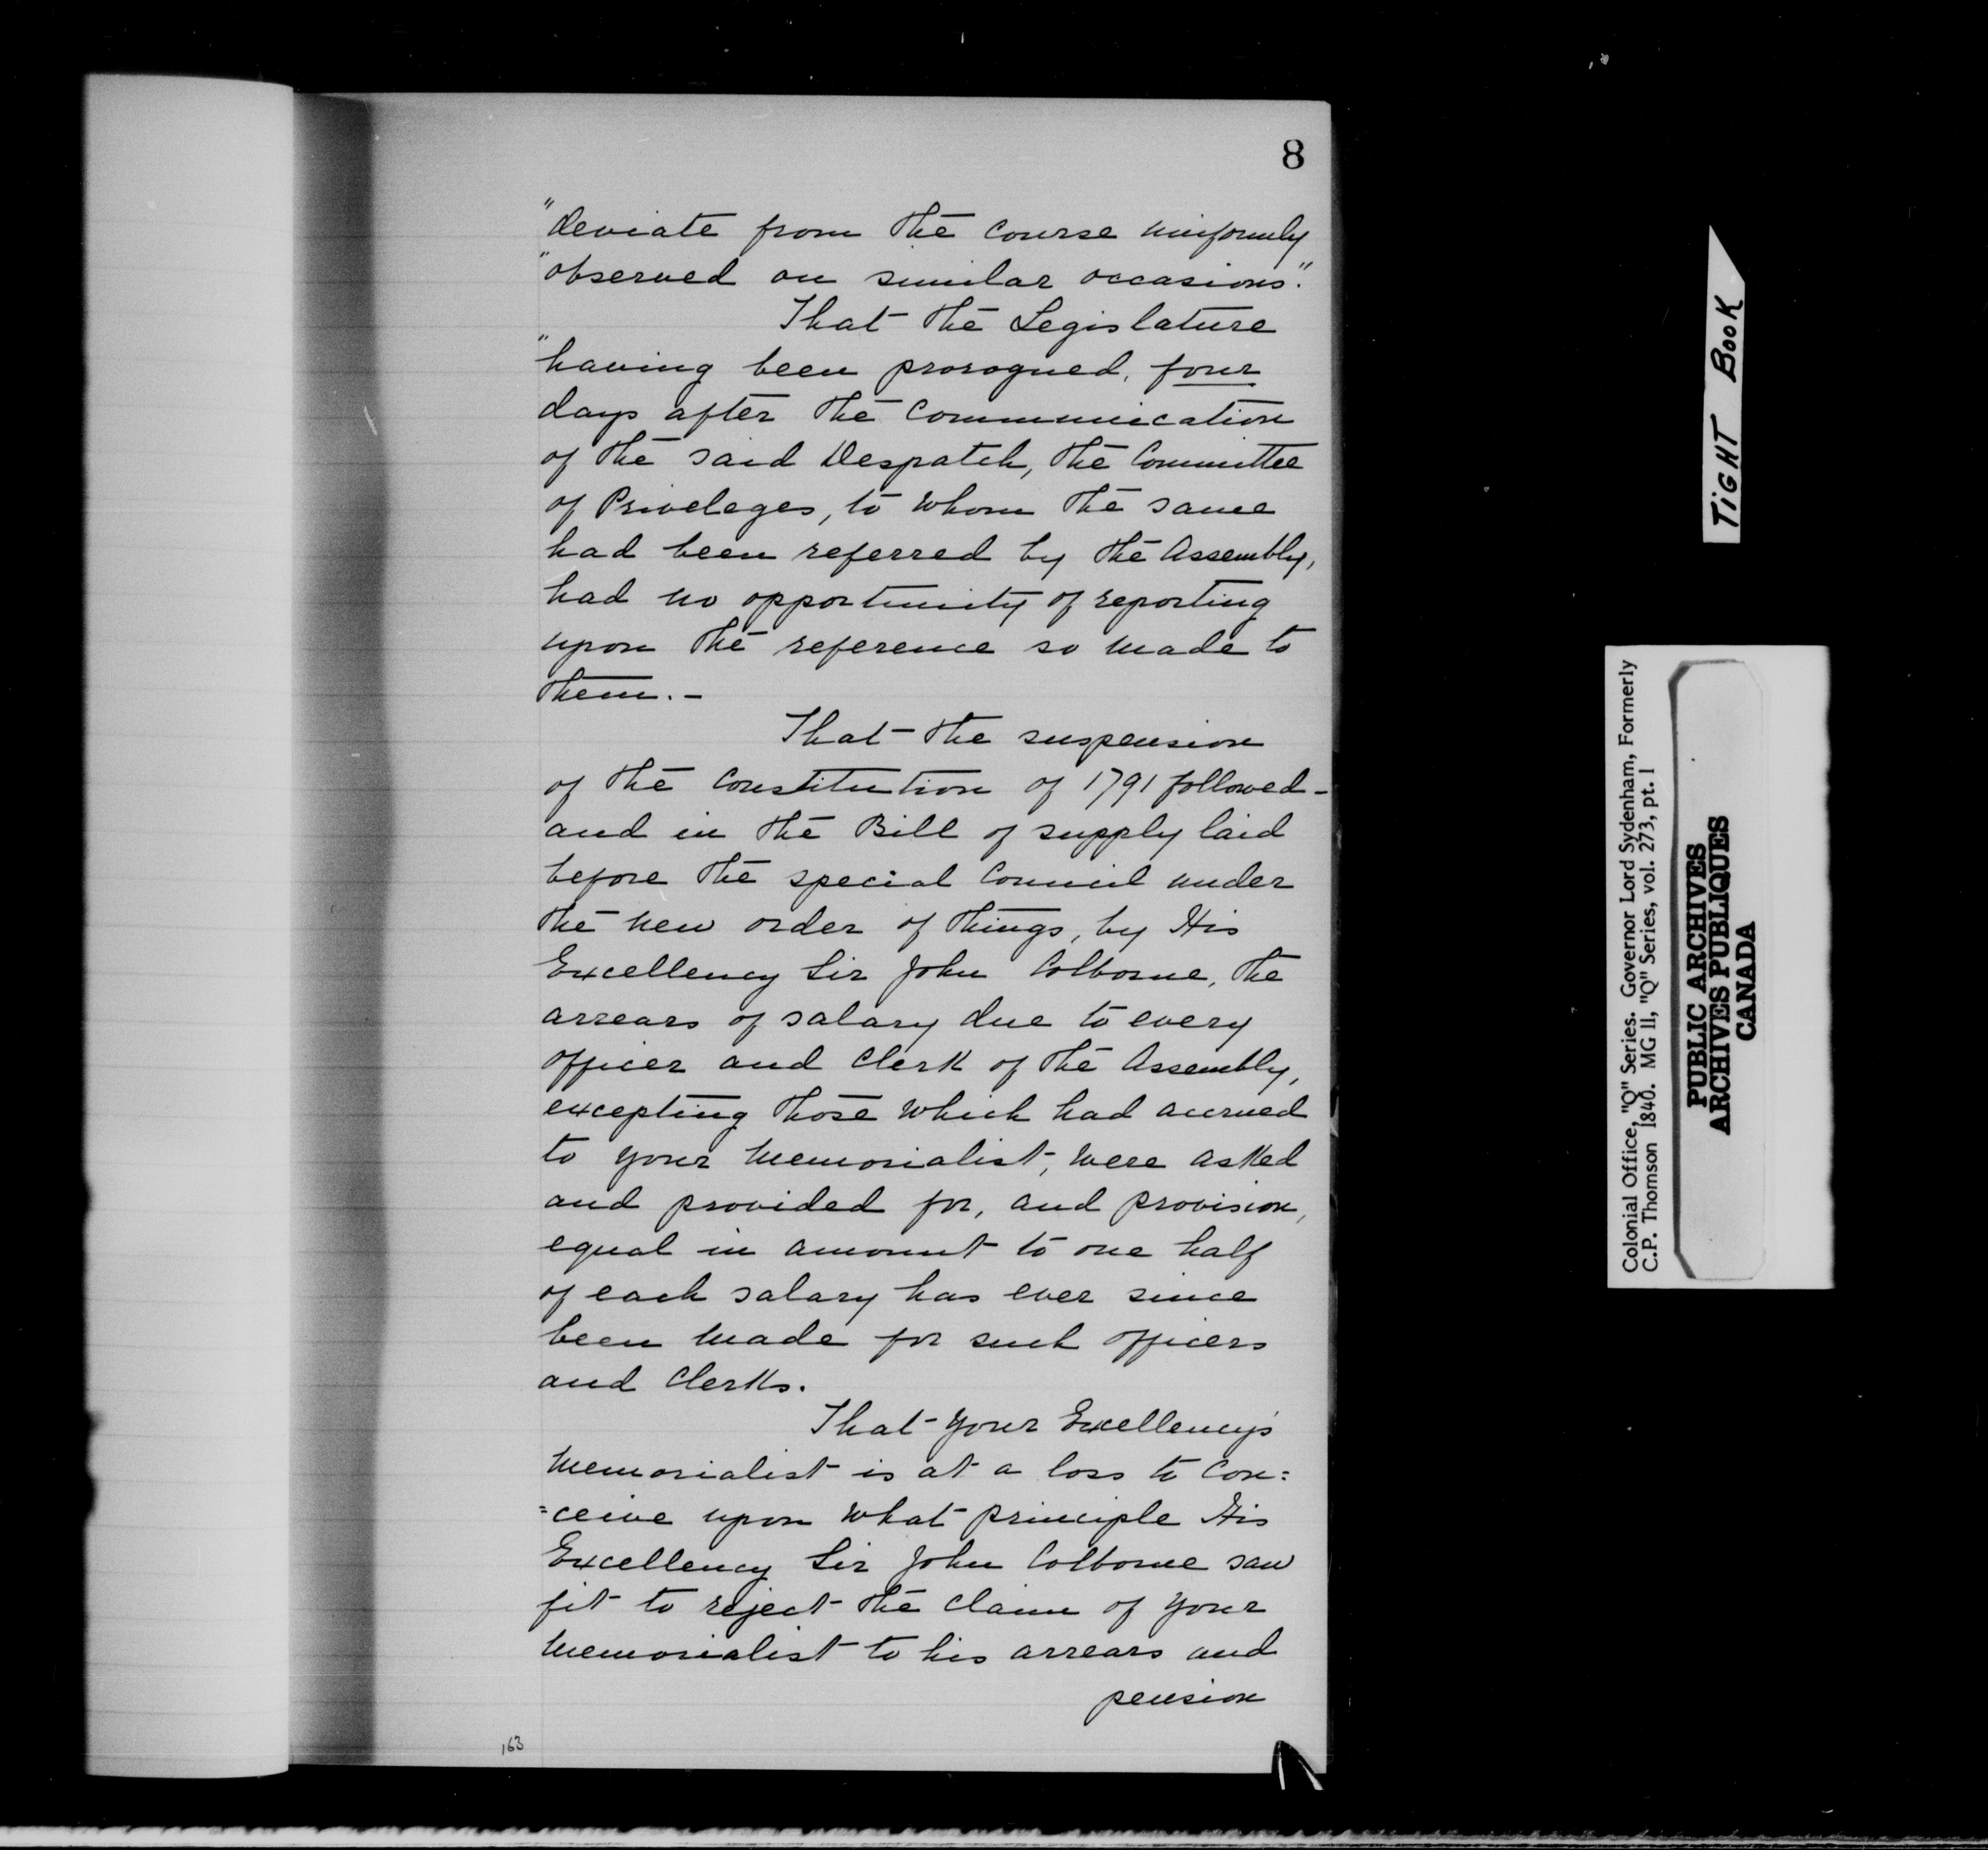 8
"deviate from the course uniformly
"observed on similar occasions."
That the Legislature
"having been prorogued, four
days after the Communication
of the said Despatch, the Committee
of Priveleges, to whom the same
had been referred by the Assembly,
had no opportunity of reporting
upon the reference so made to
them.-
That the suspension
of the Constitution of 1791 followed-
and in the Bill of supply laid
before the special Council under
the new order of things, by His
Excellency Sir John Colborne, the
arrears of salary due to every
officer and Clerk of the Assembly,
excepting those which had accrued
to your Memorialist, were asked
and provided for, and provision,
equal in amount to one half
of each salary has ever since
been made for such officers
and Clerks.
That your Excellency's
Memorialist is at a loss to Con=
=ceive upon what principle His
Excellency Sir John Colborne saw
fit to reject the claim of your
Memorialist to his arrears and
pension
163
TIGHT BOOK
Colonial Office, "Q" Series. Governor Lord Sydenham, Formerly
C.P. Thomson 1840. MG 11, "Q" Series, vol. 273, pt. 1
PUBLIC ARCHIVES
ARCHIVES PUBLIQUES
CANADA